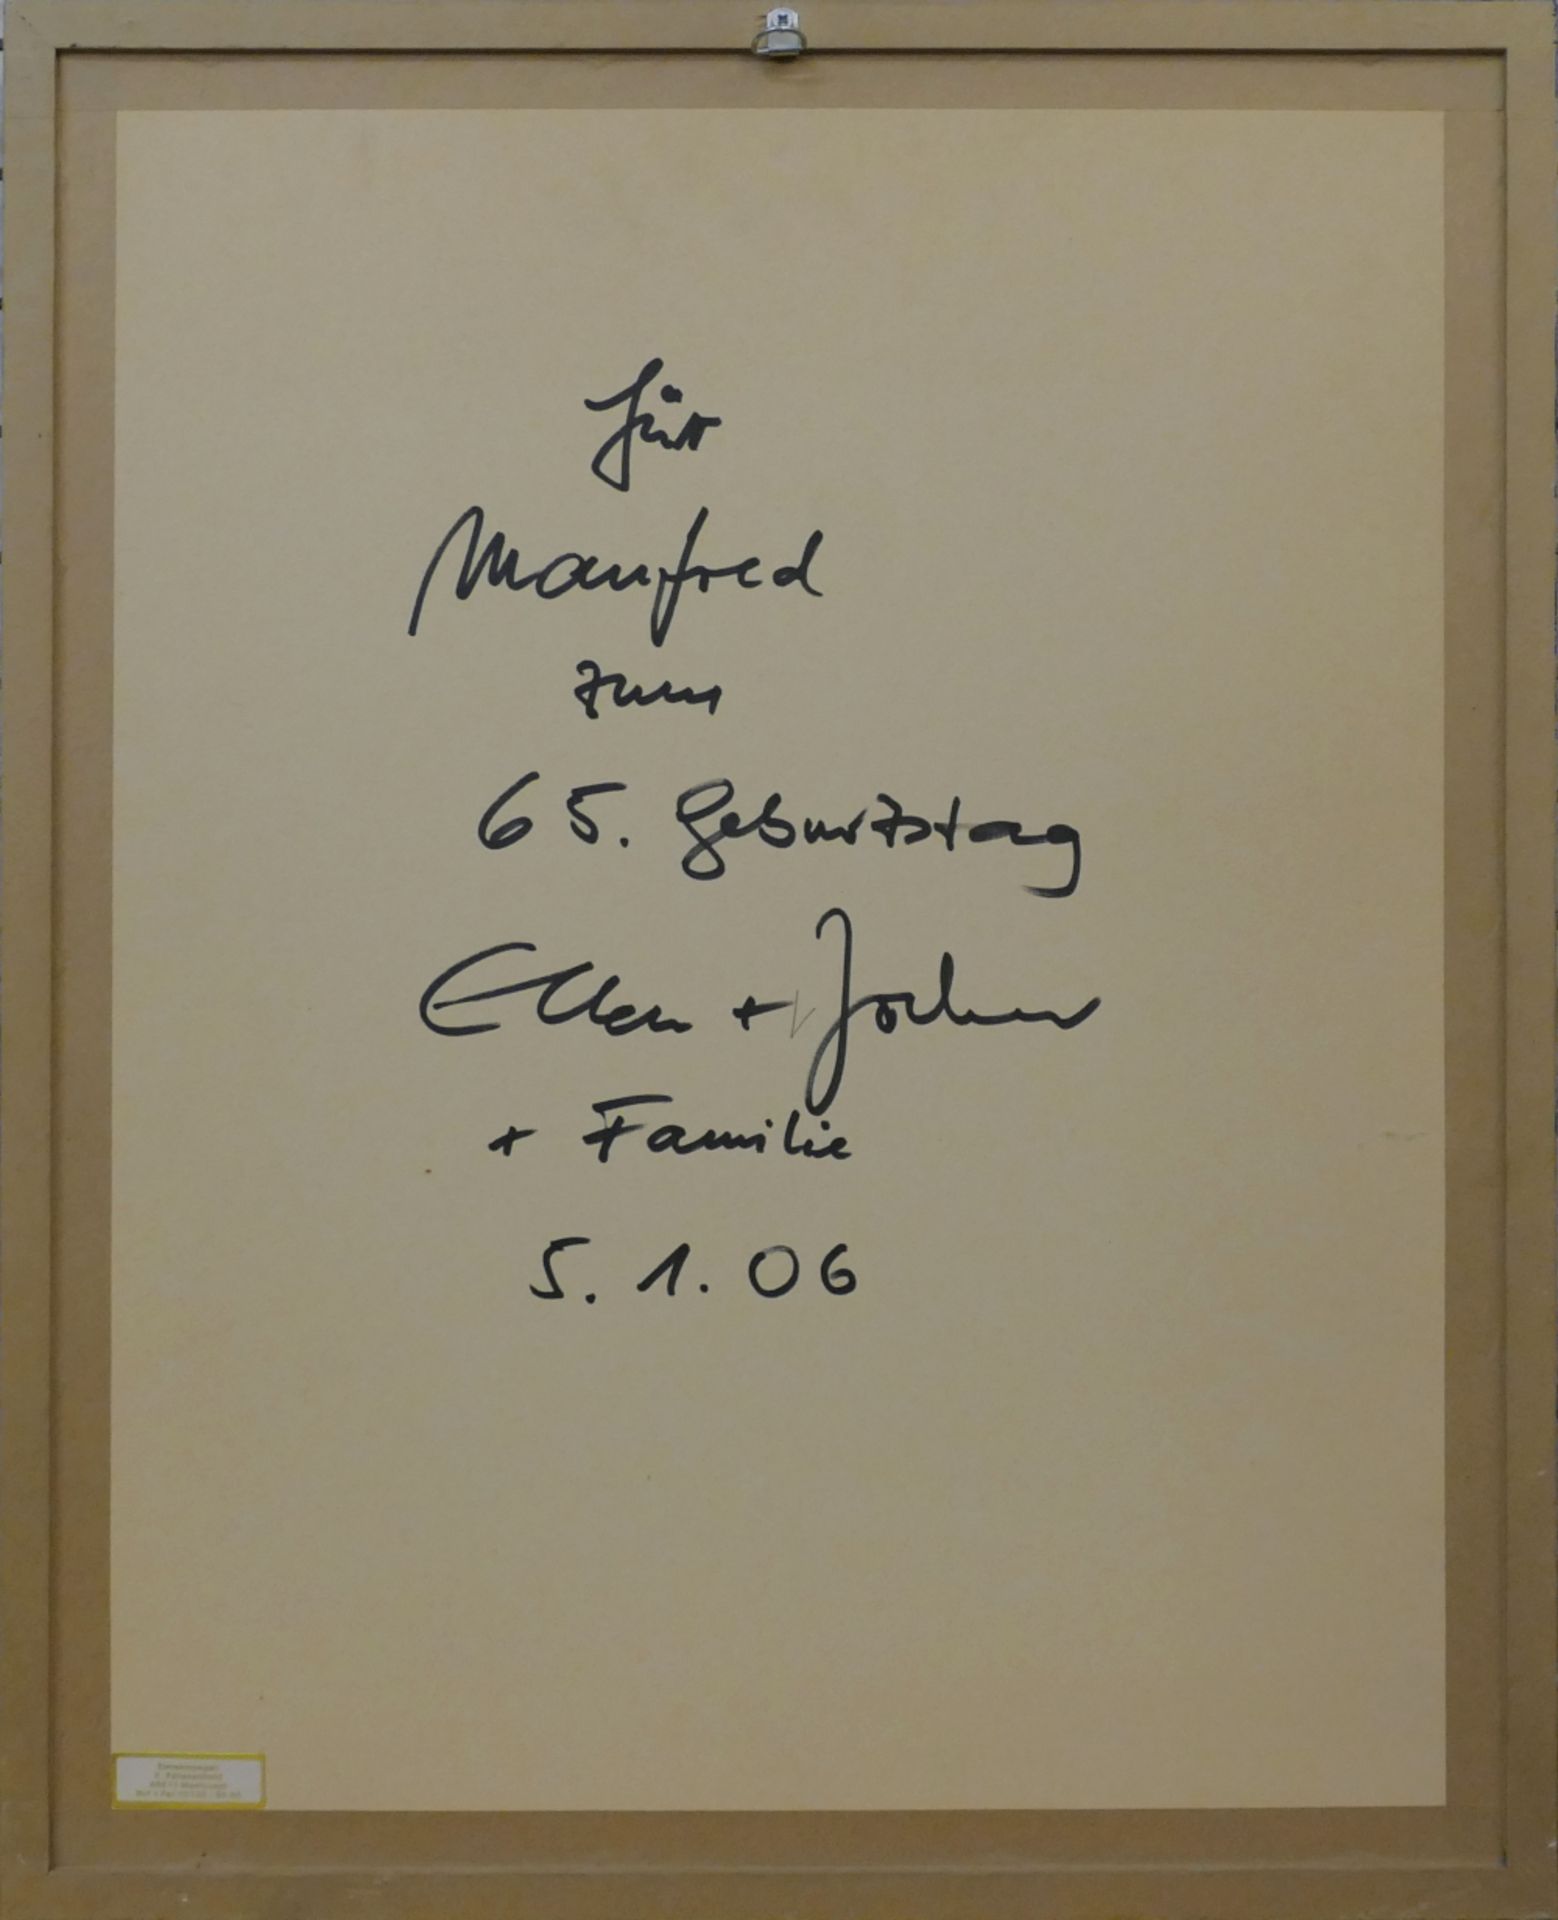 für
Manfred
zum
65. Geburtstag
Ellen + Jochen
+ Familie
5. 1. 06